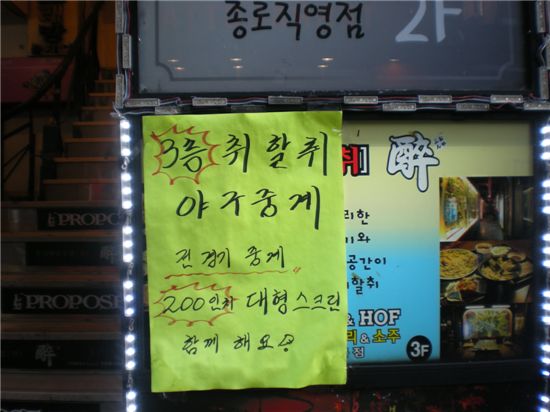 종로직영점 2F
3층 취할취
야구중계
전 경기 중계
200인치 대형스크린
함께 해요
취] 醉
리한
기와
공간이
취할취
& HOF
리 & 소주
점
3F
PROPOSE
PROPOSE
醉